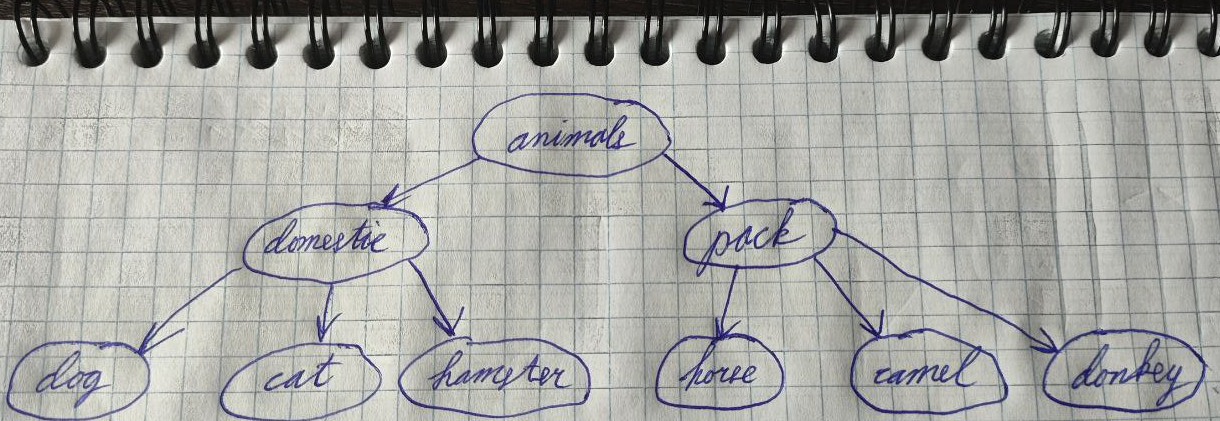 animals
domestic
pack
dog
cat
hamster
horse
camel
donkey